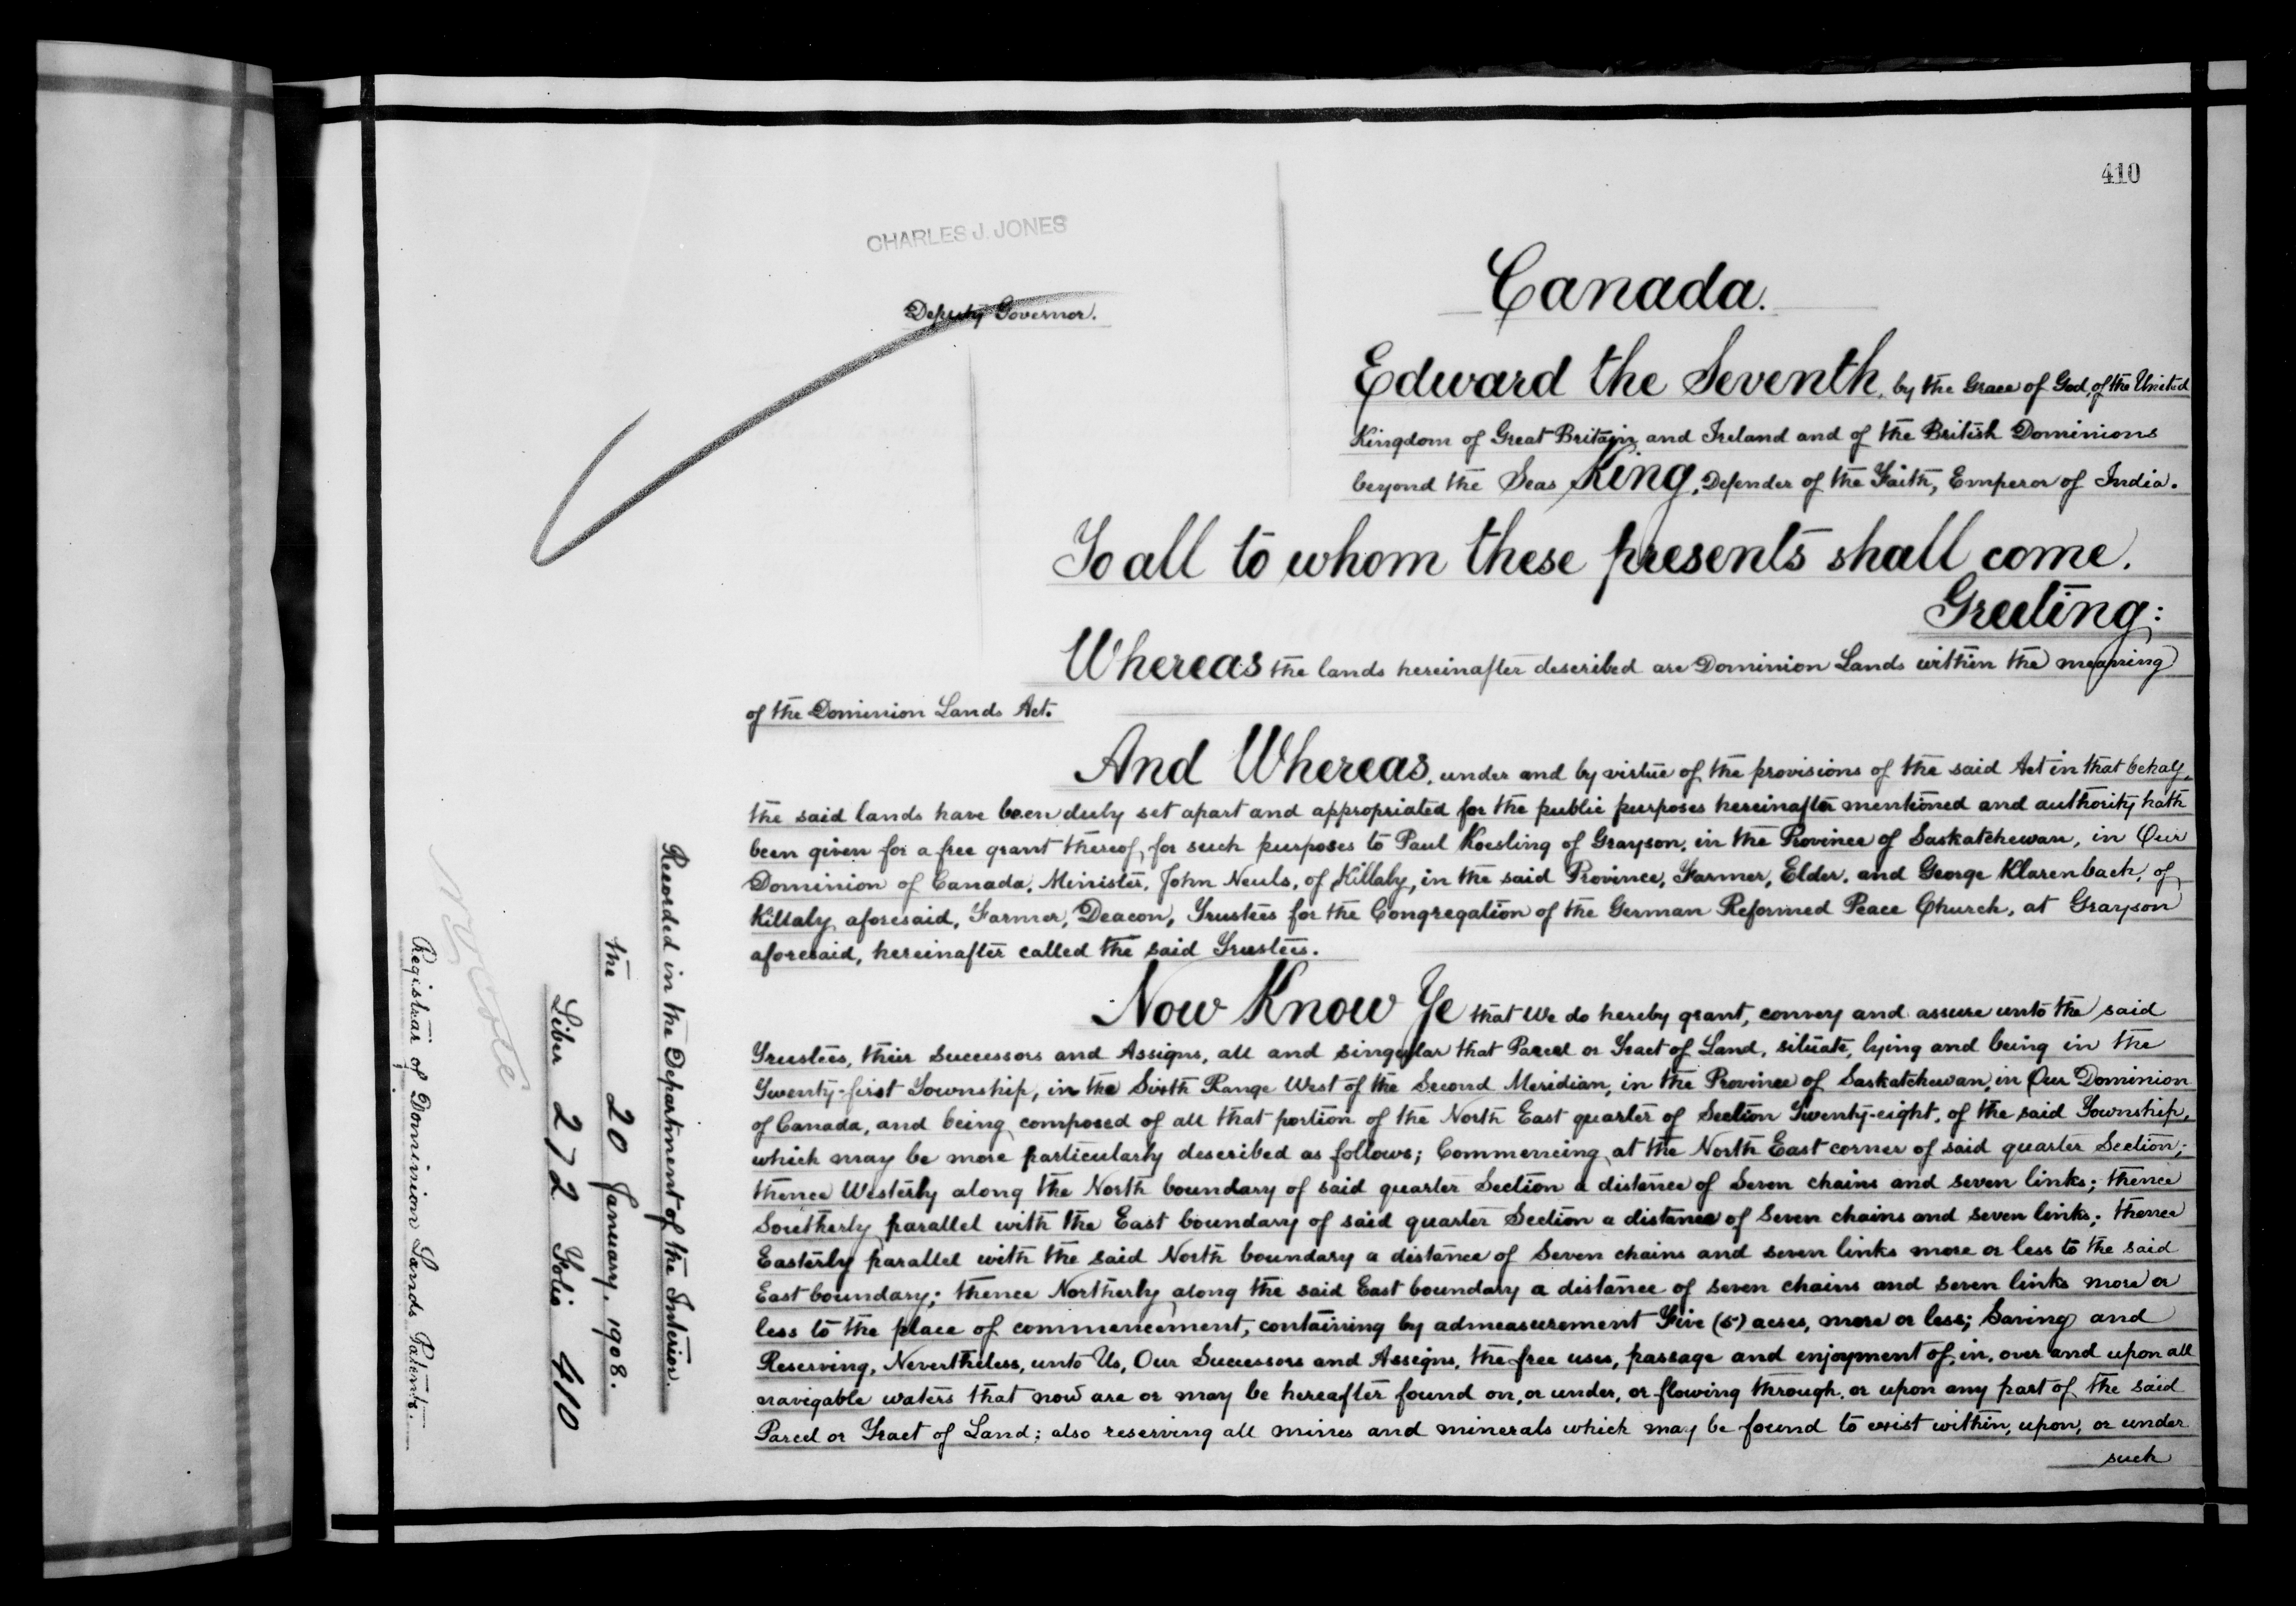 410
CHARLES J. JONES
Deputy Governor.
Canada.
Edward the Seventh, by the Grace of God, of the United
Kingdom of Great Britain and Ireland and of the British Dominions
beyond the Seas King, Defender of the Faith, Emperor of India.
To all to whom these presents shall come.
Greeting:
Whereas the lands hereinafter described are Dominion Lands within the meaning
of the Dominion Lands Act.
And Whereas, under and by virtue of the provisions of the said Act in that behalf,
the said lands have been duly set apart and appropriated for the public purposes hereinafter mentioned and authority hath
been given for a free grant thereof, for such purposes to Paul Koesling of Grayson, in the Province of Saskatchewan, in Our
Dominion of Canada, Minister, John Neuls, of Killaly, in the said Province, Farmer, Elder, and George Klarenbach, of
Killaly aforesaid, Farmer, Deacon, Trustees for the Congregation of the German Reformed Peace Church, at Grayson
aforesaid, hereinafter called the said Trustees.
Now Know Ye that We do hereby grant, convey and assure unto the said
Trustees, their Successors and Assigns, all and singular that Parcel or Tract of Land, situate, lying and being in the
Twenty-first Township, in the Sixth Range West of the Second Meridian, in the Province of Saskatchewan, in Our Dominion
of Canada, and being composed of all that portion of the North East quarter of Section Twenty-eight, of the said Township,
which may be more particularly described as follows; Commencing at the North East corner of said quarter Section;
thence Westerly along the North boundary of said quarter Section a distance of Seven chains and seven links; thence
Southerly parallel with the East boundary of said quarter Section a distance of Seven chains and seven links; thence
Easterly parallel with the said North boundary a distance of Seven chains and seven links more or less to the said
East boundary; thence Northerly along the said East boundary a distance of seven chains and seven links more or
less to the place of commencement, containing by admeasurement Five (5) acres, more or less; Saving and
Reserving, Nevertheless, unto Us, Our Successors and Assigns, the free uses, passage and enjoyment of, in, over and upon all
navigable waters that now are or may be hereafter found on, or under, or flowing through, or upon any part of the said
Parcel or Tract of Land; also reserving all mines and minerals which may be found to exist within, upon, or under
such
Recorded in the Department of the Interior.
the 20 January, 1908.
Liber 272 Folio 410
Registrar of Dominion Lands Patents.